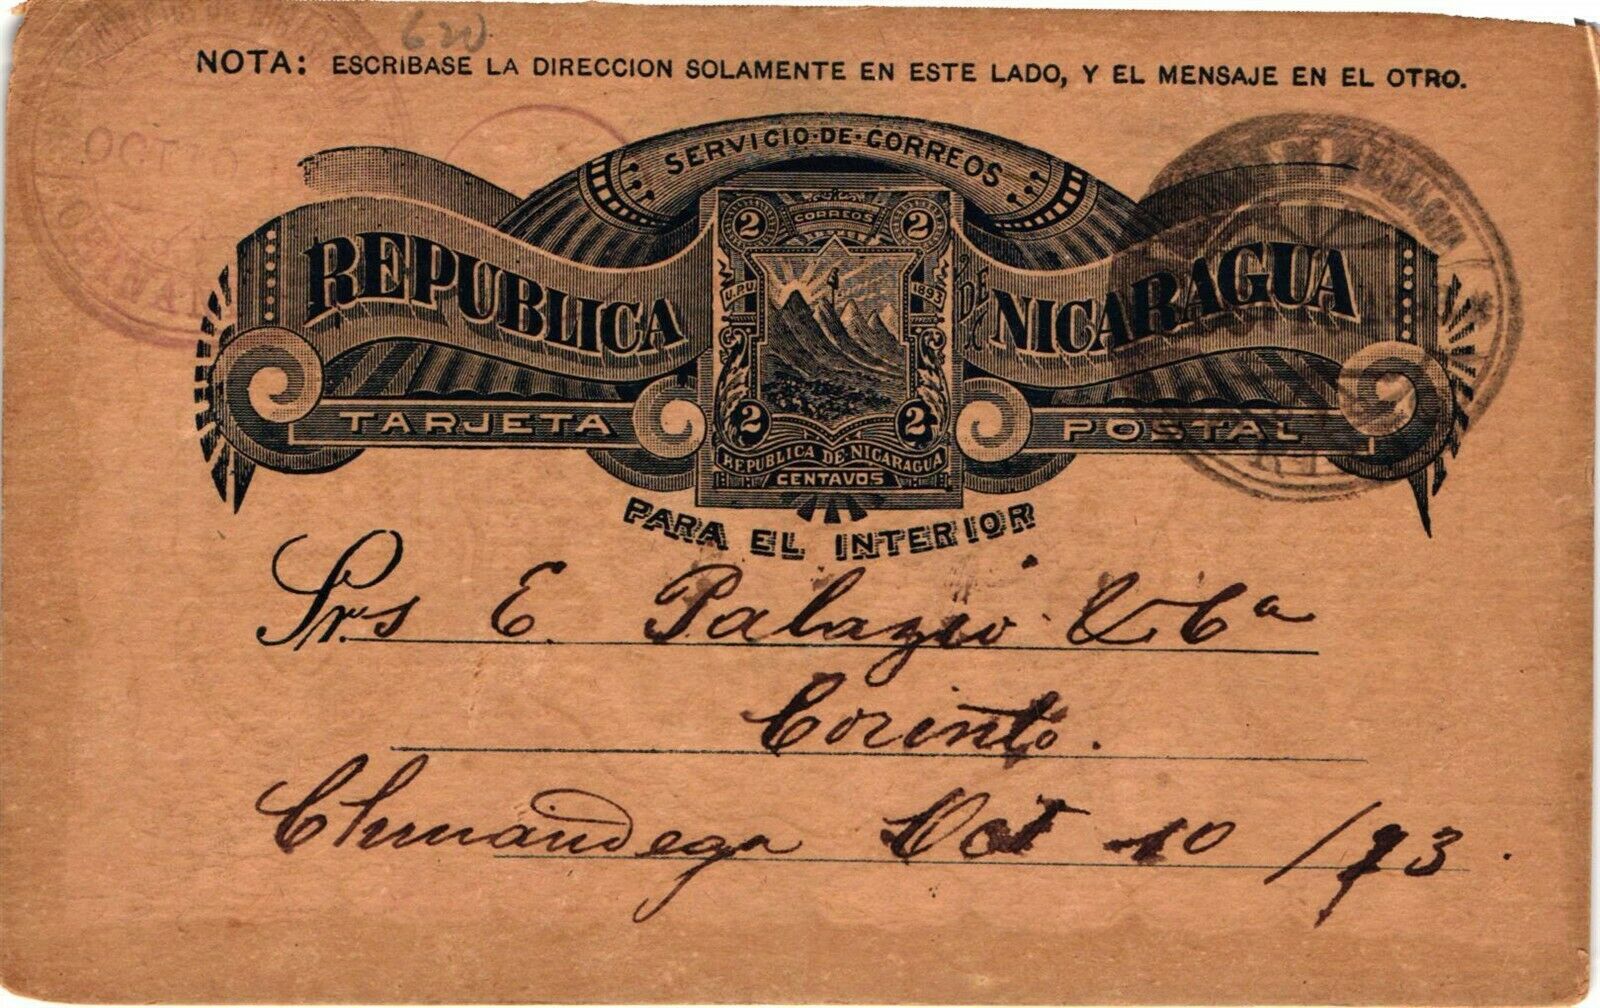 620
NOTA: ESCRIBASE LA DIRECCION SOLAMENTE EN ESTE LADO, Y EL MENSAJE EN EL OTRO.
SERVICIO·DE·CORREOS
REPUBLICA DE NICARAGUA
2 CORREOS 2
U.P.U. 1893
2 2
REPUBLICA DE NICARAGUA
CENTAVOS
TARJETA POSTAL
PARA EL INTERIOR
OCT
Srs E. Palazio & Cª
Corinto.
Chinandega Oct 10 /93.